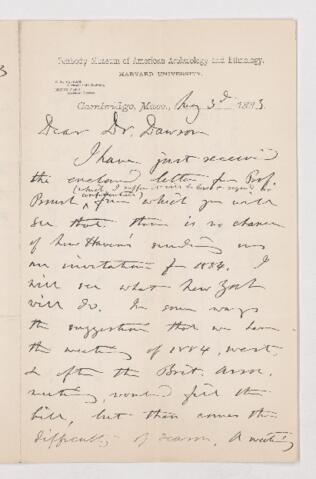 Peabody Museum of American Archæology and Ethnology,
HARVARD UNIVERSITY.
Cambridge, Mass., Aug 3d 1883
Dear Dr. Dawson
I have just received
the enclosed letter from Prof.
(which I suppose
confidential)
Brush from which you will
see that there is no chance
of New Haven's sending us
an invitation for 1884. I
will see what New York
will do. In some ways
the suggestion that we have
the meeting of 1884, west,
& after the Brit. Assn.
meeting, would fill the
bill, but then comes the
difficulty of season. A meeting